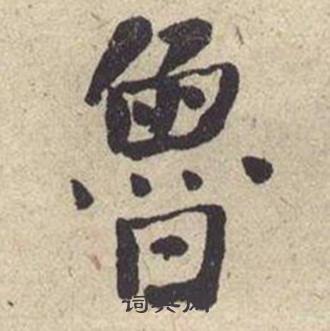 魯
词典网